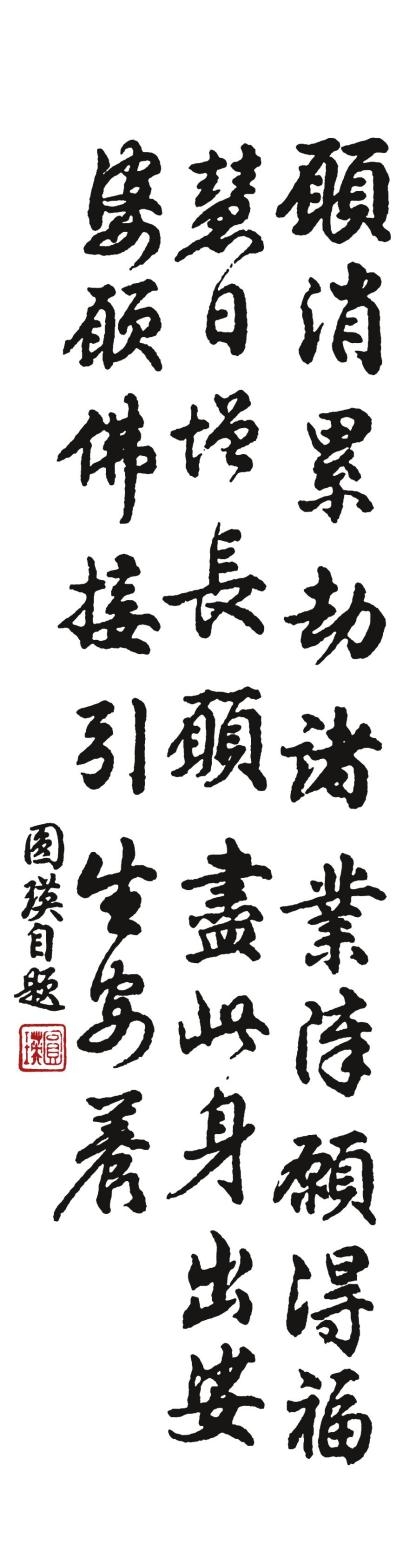 願消累劫諸業障願得福
慧日增長願盡此身出娑
婆願佛接引生安養
圓瑛自題
圓瑛